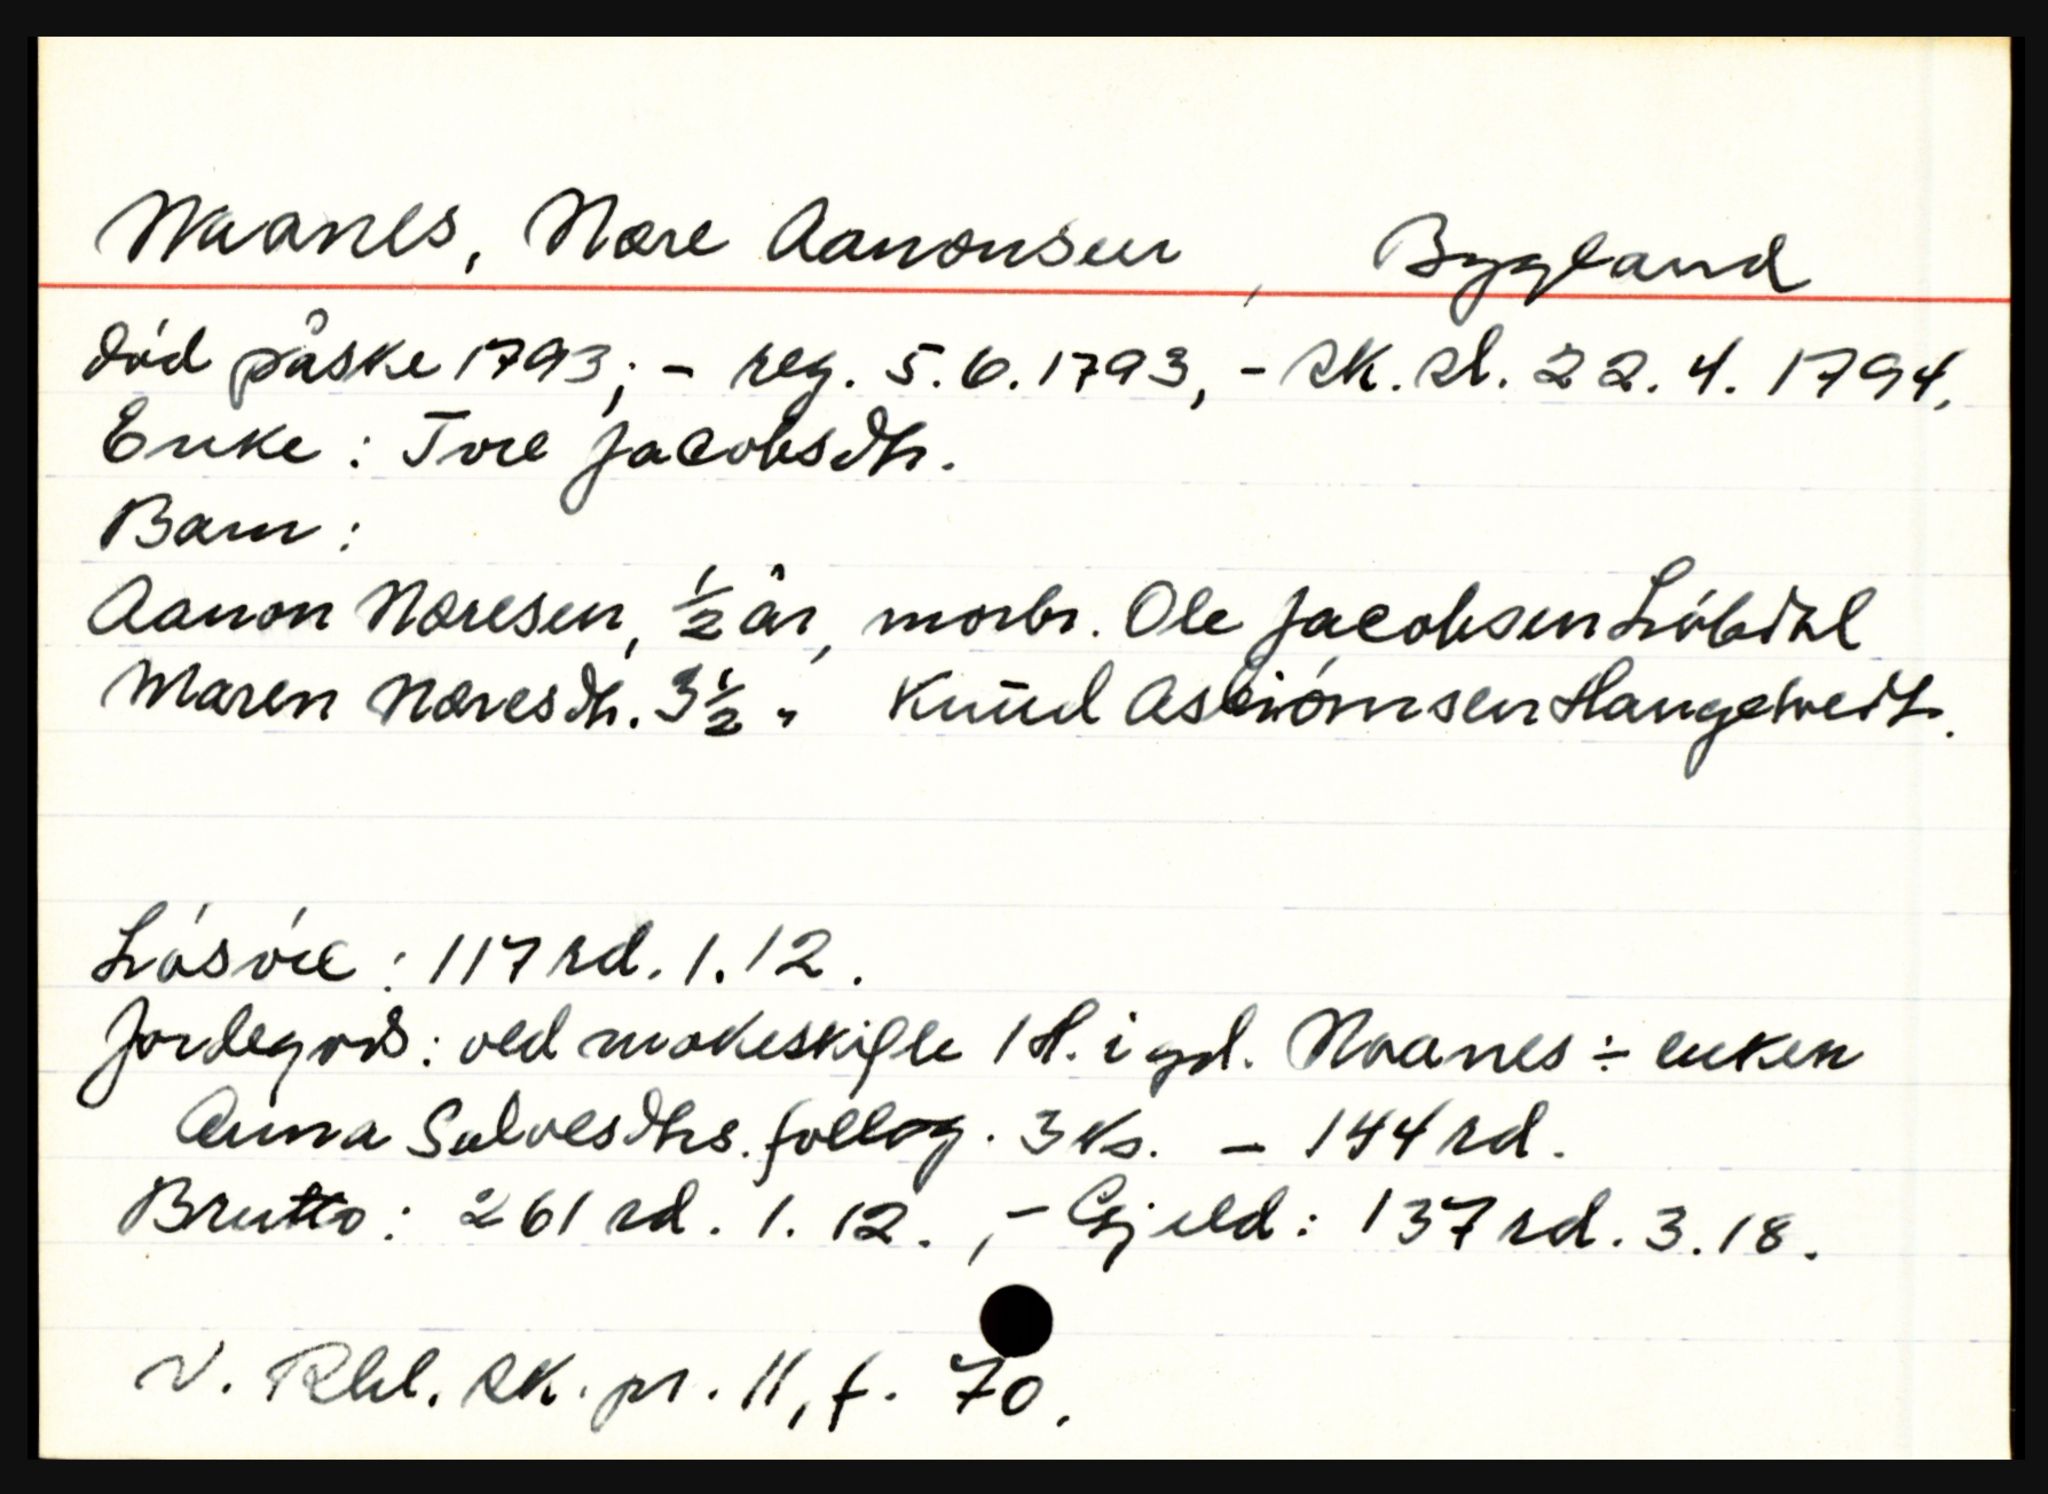 Naanes, Nore Aanonsen, Bygland
død påske 1793; - reg. 5.6.1793, - sk. sl. 22.4.1794.
Enke: Tore Jacobsdtr.
Barn:
Aanon Noresen, ½ år, morbr. Ole Jacobsen Löbdhl
Maren Noresdtr. 3½ " Knud Asbiörnsen Haugetvedt.
Lösöre: 117 rd. 1. 12.
Jordegods: ved makeskifte 1 H. i gd. Noanes ÷ enken
Anna Salvesdtrs. follog. 3 ks. - 144 rd.
Brutto: 261 rd. 1. 12. , - Gjeld: 137 rd. 3. 18.
V. Rbl. sk. pr. 11, f. 70.